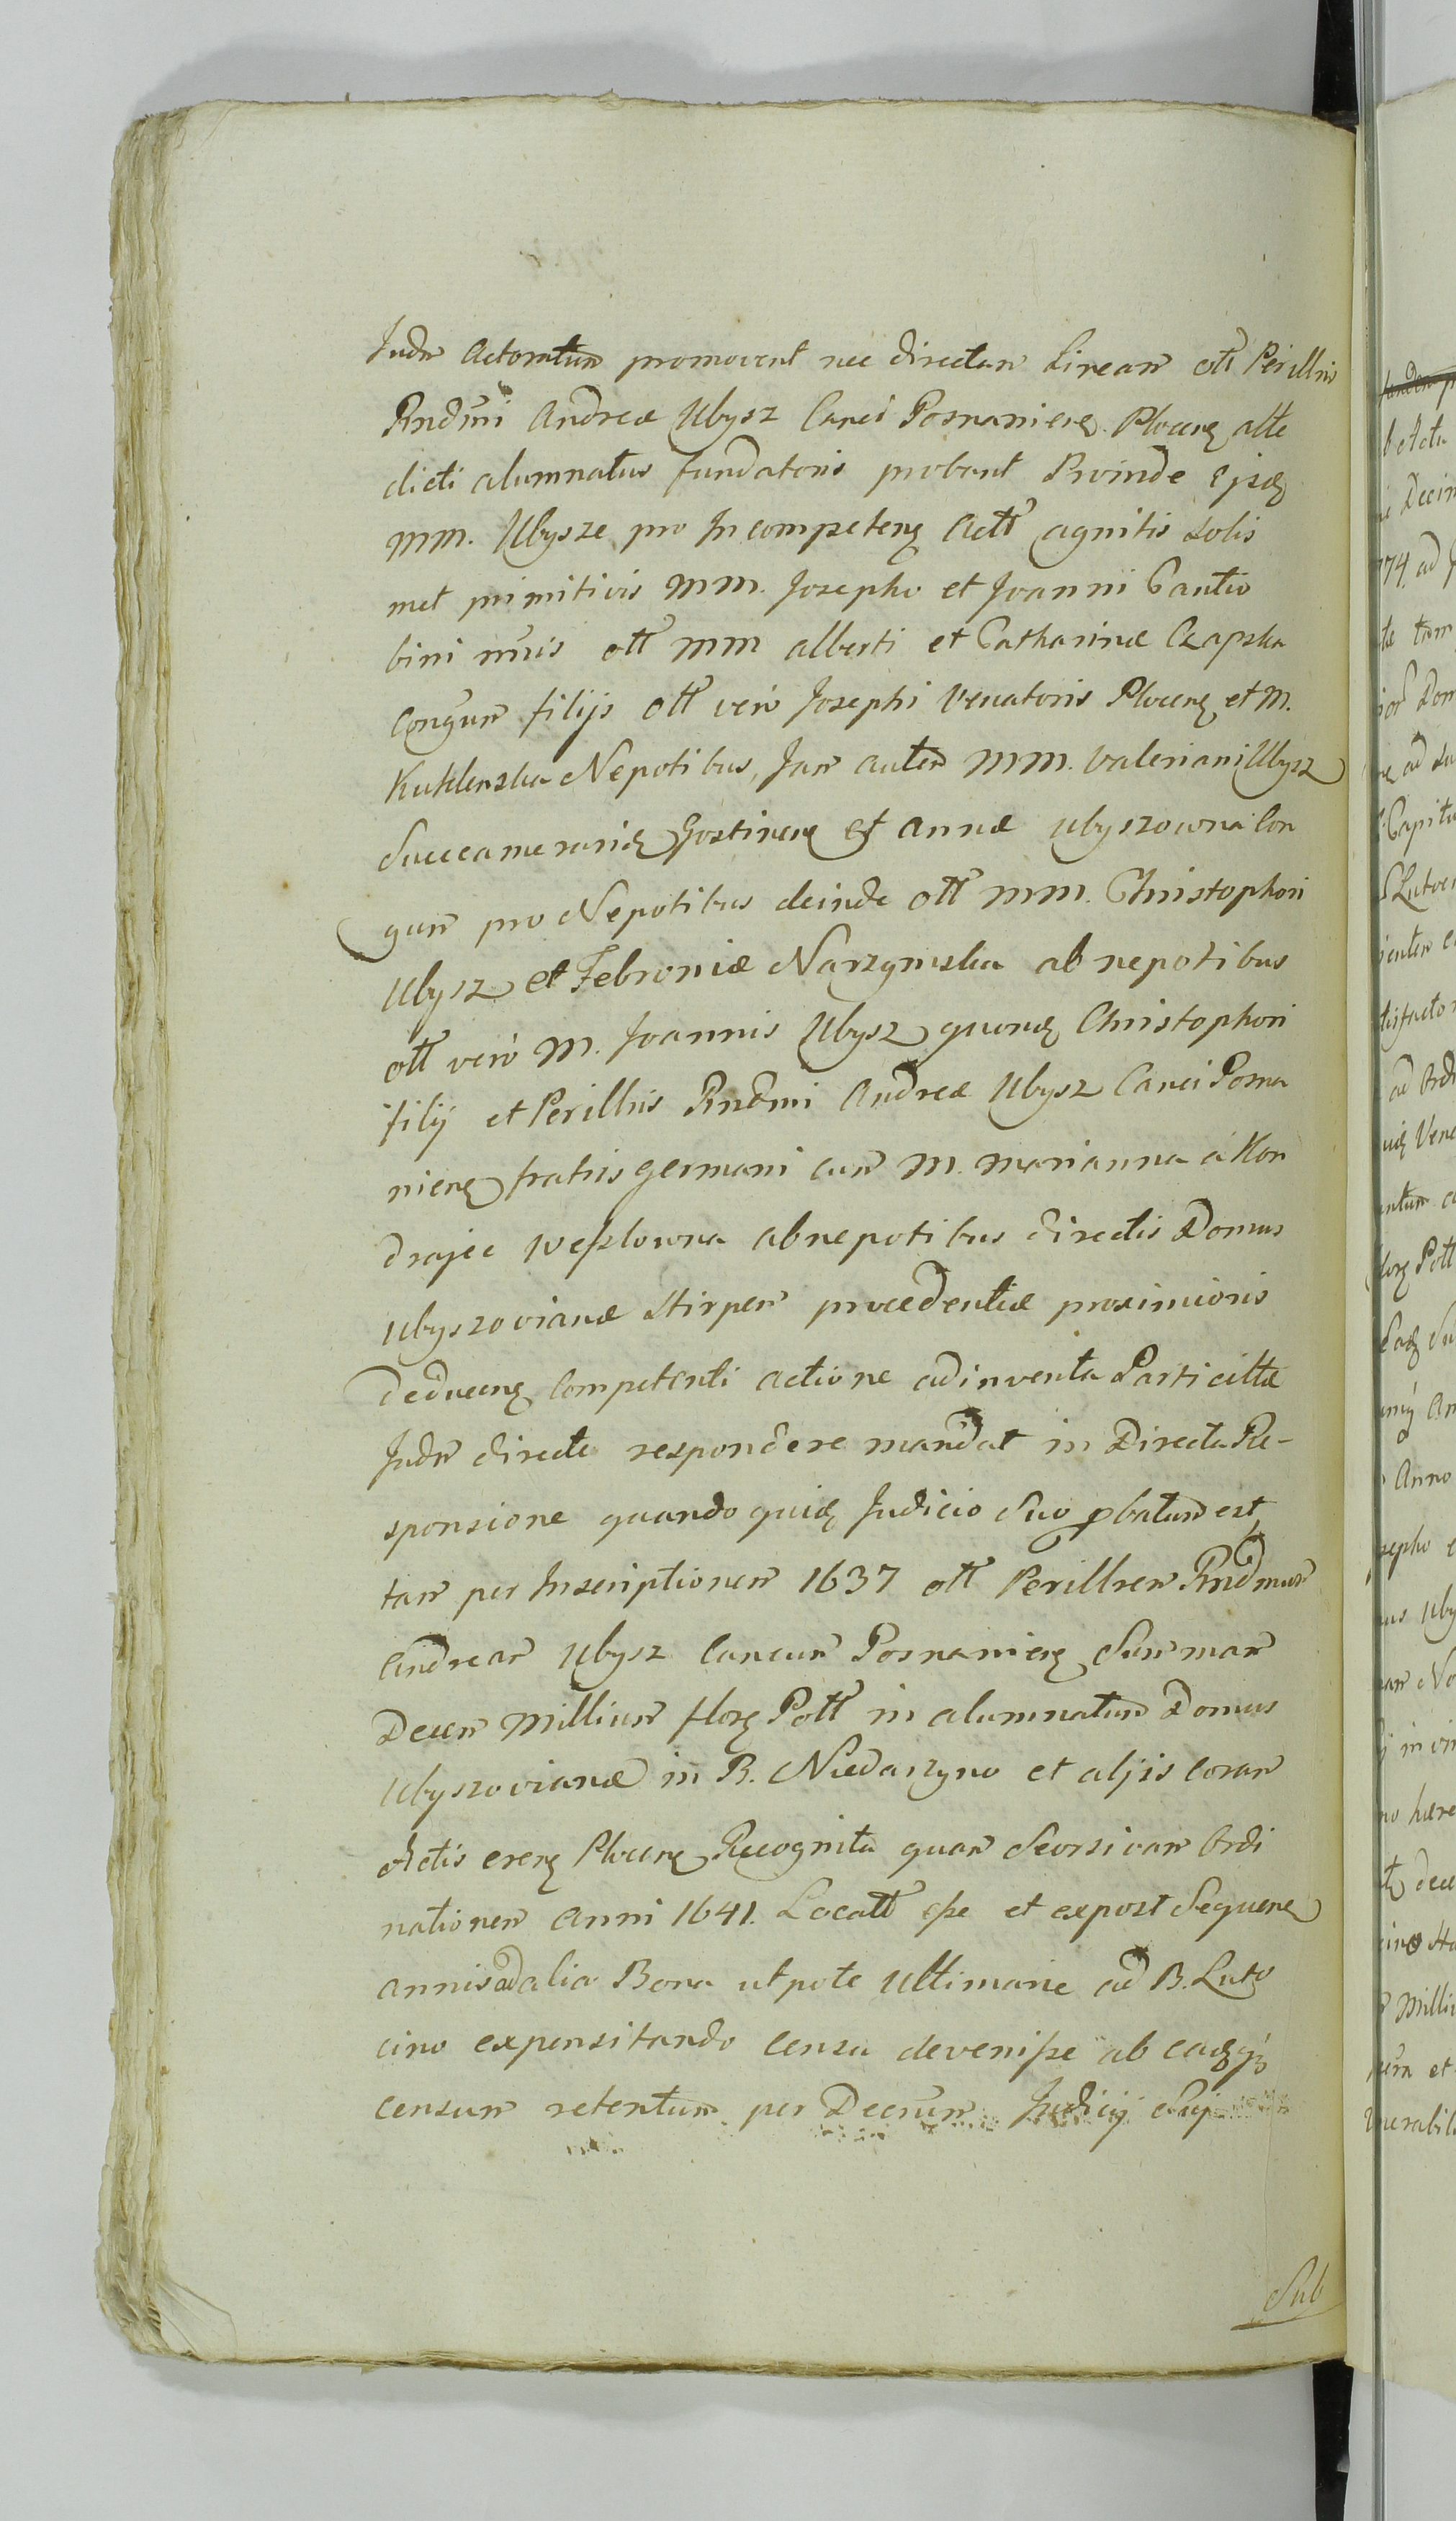 Judm Actoratum promovent nec directam Lineam ott Perillris
Rndmi Andreæ Ubysz Canci Posnaniens Plocens alte
dicti alumnatus fundatoris probant Proinde Ipsos
MM. Ubysze pro Incompetens Actt agnitis solis
met primitivis MM. Josepho et Joanni Cantio
bini nnis ott MM alberti et Catharinæ Czapska
Congum filijs ott vero Josephi Venatoris Plocens et M.
Kuklenska Nepotibus, Jam autem MM. Valeriani Ubysz
Succamerarid Gostinens et Annæ Ubyszowna Con
gum pro Nepotibus deinde ott MM. Christophori
Ubysz et Febroniæ Narzymska ab nepotibus
ott vero M. Joannis Ubysz quond Christophori
filij et Perillris Rndmi Andreæ Ubysz Canci Posna
niens fratris germani cum M. Marianna a Kon
drajec Weszlowna abnepotibus directis Domus
Ubyszovianæ Stirpem procedentiæ proximioris
deducens Competenti actione adinventa Parti cittæ
Judm directe respondere mandat in Directa Re-
sponsione quando quid Judicio suo pbatum est,
tam per Inscriptionem 1637 ott Perillrem Rndmum
Andream Ubysz Cancum Posnaniens Summam
Decem Millium flor Pott in alumnatum Domus
Ubyszovianæ in B. Niedarzyno et alijs coram
Actis crens Plocens Recognita quam Seorsivam Ordi
nationem Anni 1641. Locatt esse et expost Sequens
annis ad alia Bona utpote Ultimarie ad B. Luto
cino expensitando Censu devenisse ab eadq
censum retentum per Decrum Judicij Sup
Sub